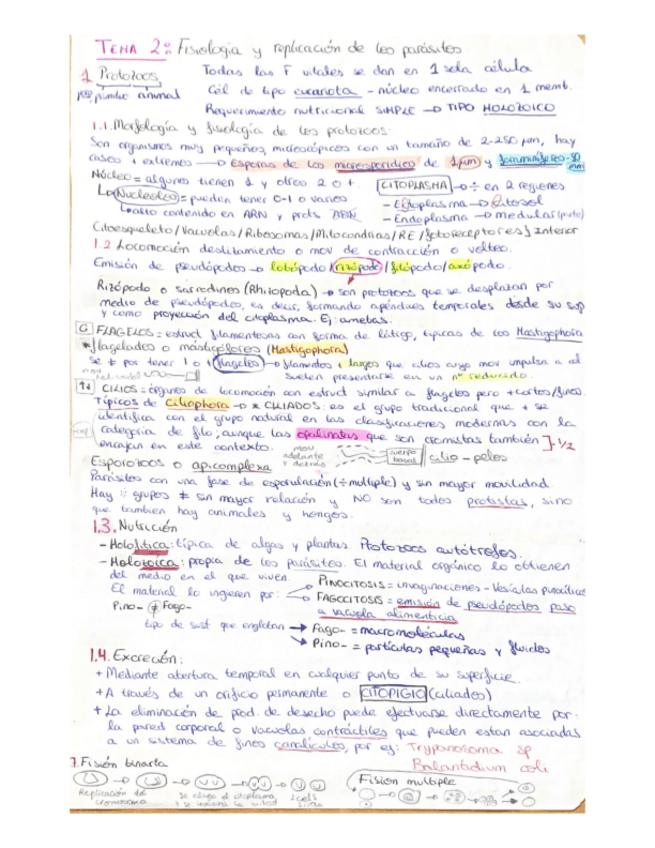 TEMA 2: Fisiología y replicación de los parásitos
1 Protozoos
Todas las F vitales se dan en 1 sola célula
primitivo animal
Cél de tipo eucariota - núcleo encerrado en 1 memb.
Requerimiento nutricional SIMPLE → TIPO HOLOZOICO
1.1. Morfología y fisiología de los protozoos:
Son organismos muy pequeños, microscópicos con un tamaño de 2-250 μm, hay
casos + extremos → Esporas de los microsporidios de 1μm y foraminíferos
Núcleo = algunos tienen 1 y otros 2 o +.
CITOPLASMA → ÷ en 2 regiones
↳ Nucleolo = pueden tener 0-1 o varios
- Ectoplasma → Citosol
↳ alto contenido en ARN y prots
- Endoplasma → medular
Citoesqueleto/Vacuolas/Ribosomas/Mitocondrias/RE/fotoreceptores} Interior
1.2 Locomoción deslizamiento o mov de contracción o volteo.
Emisión de pseudópodos → lobópodo/rizópodo/filópodo/axópodo.
Rizópodo o sarcodinos (Rhizopoda) → son protozoos que se desplazan por
medio de pseudópodos, es decir, formando apéndices temporales desde su sup
y como proyección del citoplasma. Ej: amebas.
FLAGELOS = estruct filamentosas con forma de látigo, típicas de los Mastigophora
*flagelados o mastigóforos (Mastigophora)
se ≠ por tener 1 o + flagelos → filamentos + largos que cilios cuyo mov impulsa a la cél
suelen presentarse en un nº reducido.
CILIOS = órganos de locomoción con estruct similar a flagelos pero + cortos/finos.
Típicos de Ciliophora → * CILIADOS: es el grupo tradicional que + se
identifica con el grupo natural en las clasificaciones modernas con la
categoría de filo; aunque las opalinatas que son cromistas también
encajan en este contexto.
mov adelante y detrás
cuerpo basal
cilio - pelos
1/2
Esporozoos o apicomplexa
Parásitos con una fase de esporulación (÷ múltiple) y sin mayor movilidad.
Hay grupos ≠ sin mayor relación y NO son todos protistas, sino
que también hay animales y hongos.
1.3. Nutrición
- Holofítica: típica de algas y plantas. Protozoos autótrofos.
- Holozoica: propia de los parásitos. El material orgánico lo obtienen
del medio en el que viven.
PINOCITOSIS = invaginaciones - Vesículas pinocíticas
El material lo ingieren por:
FAGOCITOSIS = emisión de pseudópodos paso
a vacuola alimenticia
Pino- ≠ Fago-
tipo de sust que engloban
→ Fago- = macromoléculas
→ Pino- = partículas pequeñas y fluidos
1.4. Excreción:
+ Mediante abertura temporal en cualquier punto de su superficie.
+ A través de un orificio permanente o CITOPIGIO (ciliados)
+ La eliminación de prod. de desecho puede efectuarse directamente por:
la pared corporal o vacuolas contráctiles que pueden estar asociadas
a un sistema de finos canalículos, por ej: Trypanosoma sp
Balantidium coli
7. Fisión binaria
Fisión multiple
Replicación del cromosoma